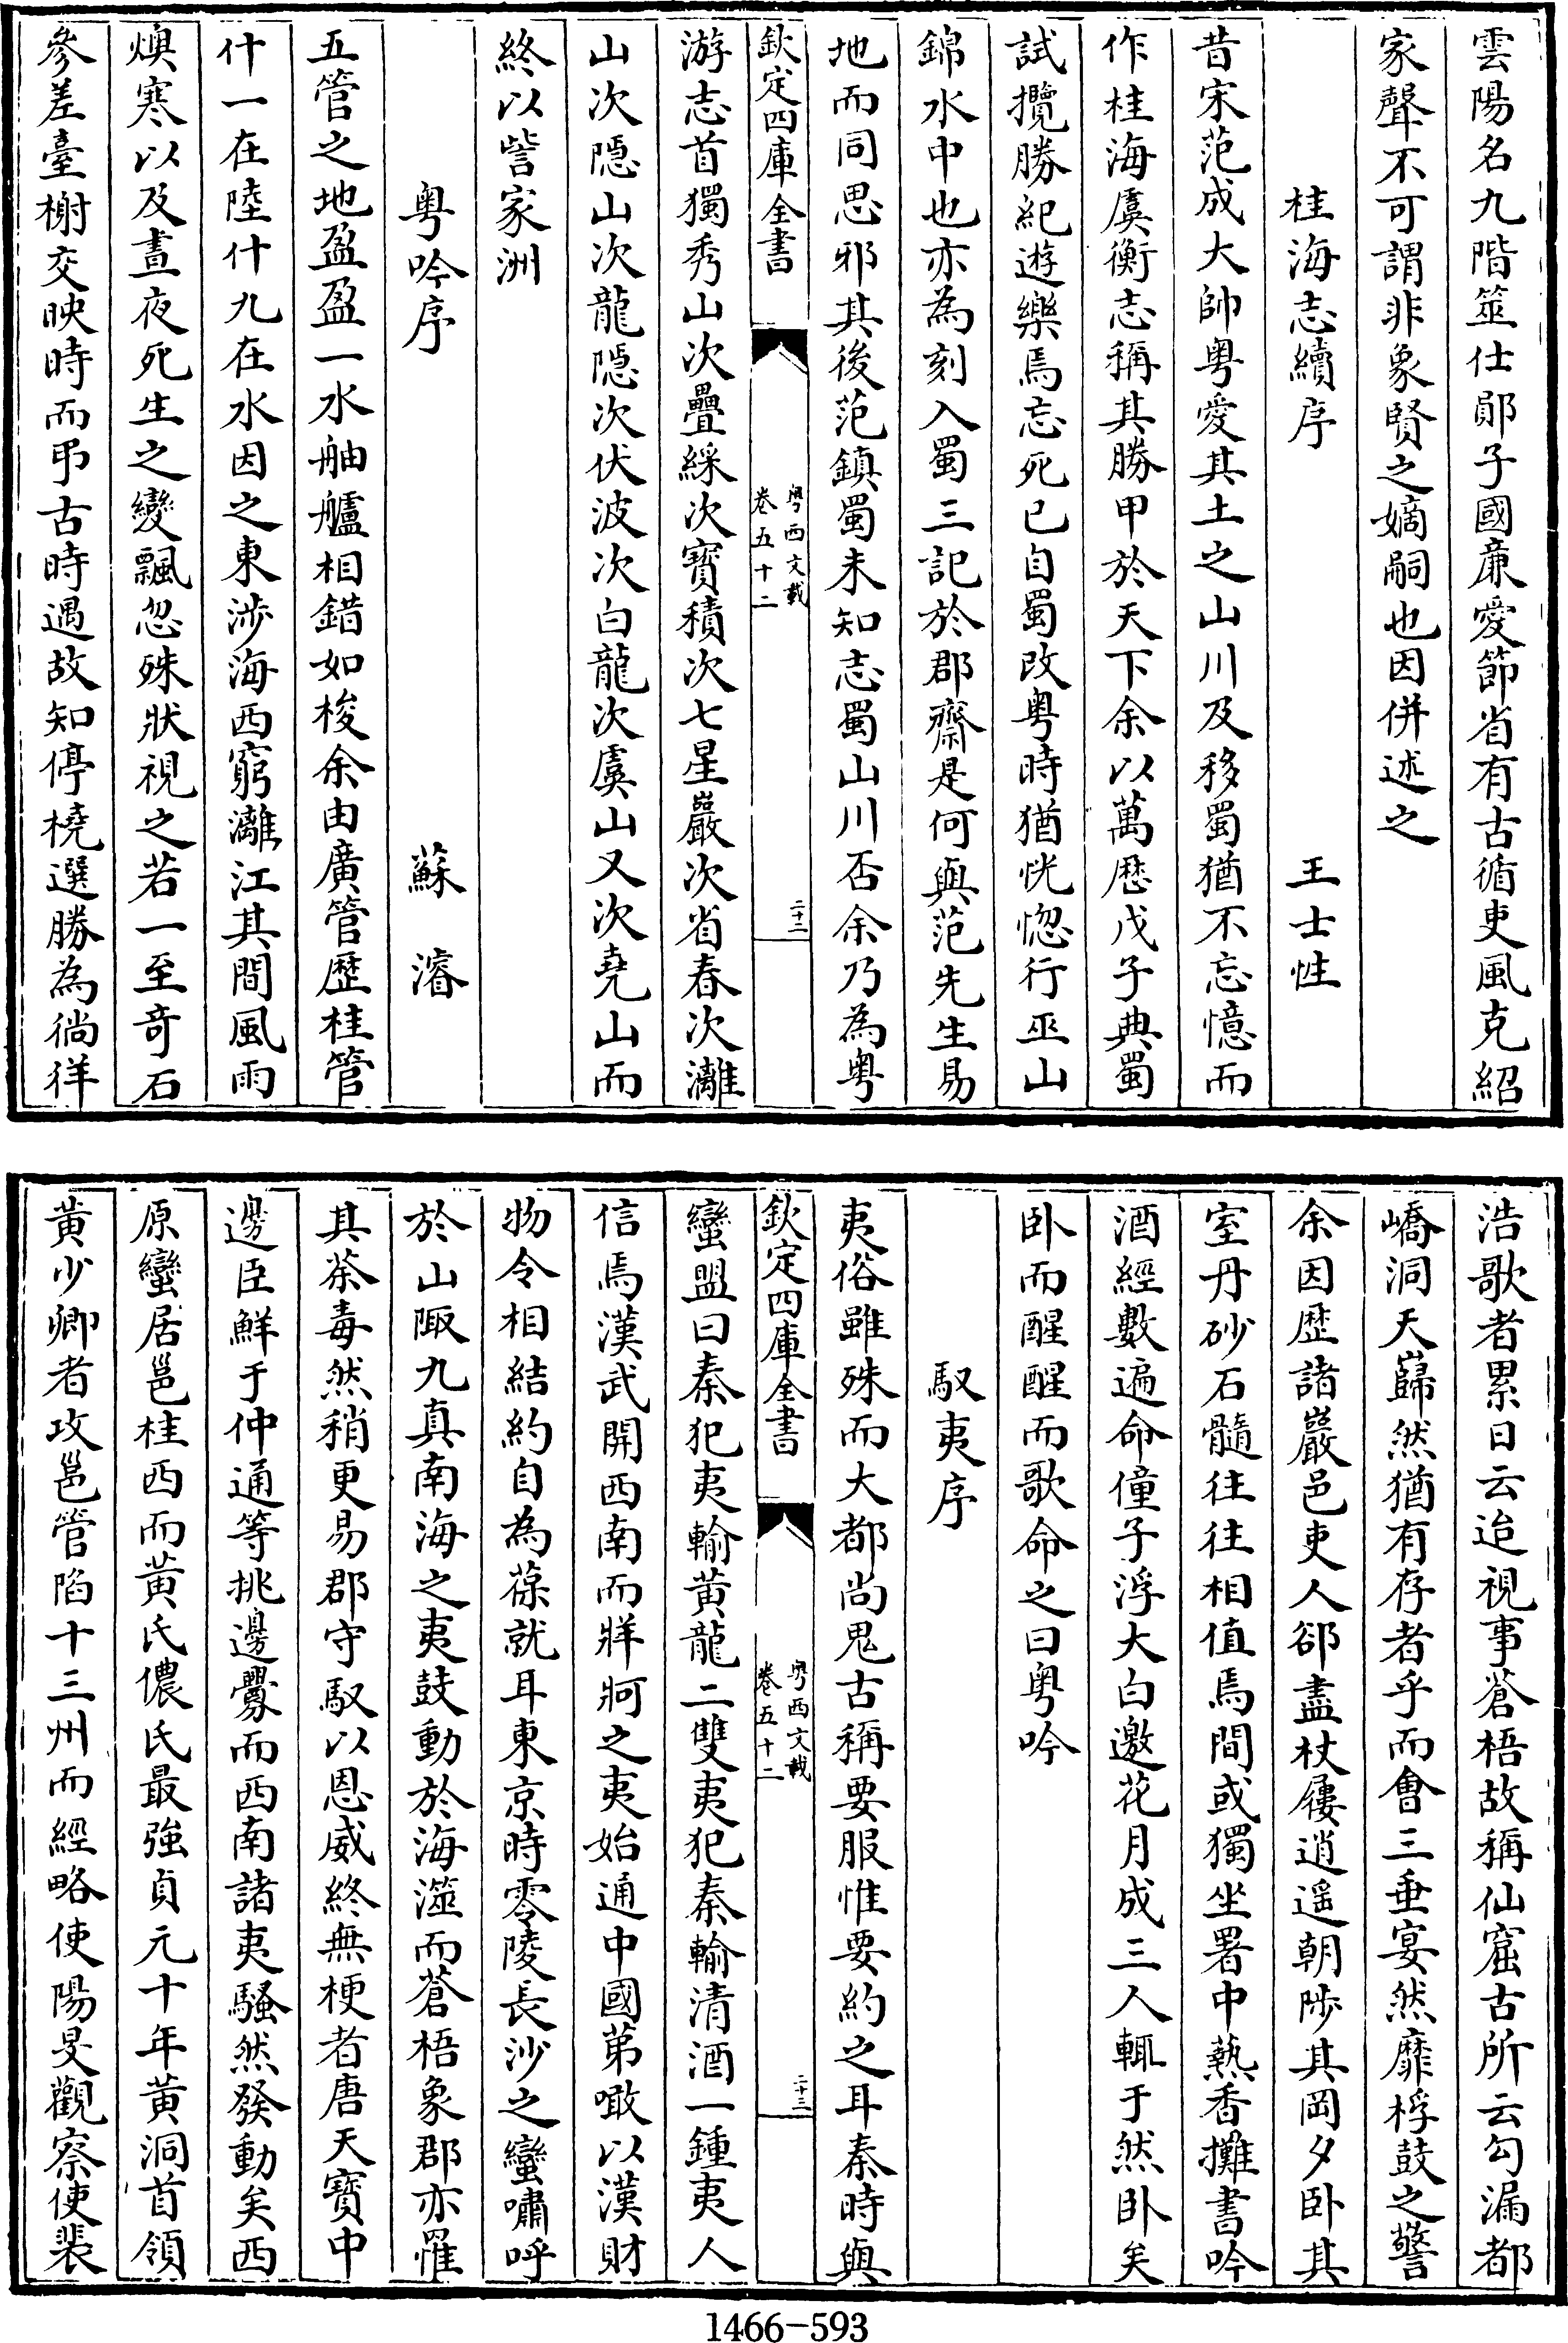 雲陽名九階筮仕鄖子國亷愛節省有古循吏風克紹
家聲不可謂非象賢之嫡嗣也因併述之
桂海志續序　王士性
昔宋范成大帥粤愛其土之山川及移蜀猶不忘憶而
作桂海虞衡志稱其勝甲於天下余以萬厯戊子典蜀
試攬勝紀遊樂焉忘死已自蜀改粤時猶恍惚行巫山
錦水中也亦為刻入蜀三記於郡齋是何與范先生易
地而同思邪其後范鎮蜀未知志蜀山川否余乃為粤
欽定四庫全書　粤西文載卷五十二　二十二
游志首獨秀山次疊綵次寳積次七星巖次省春次灕
山次隱山次龍隱次伏波次白龍次虞山又次堯山而
終以訾家洲
粤吟序　蘇濬
五管之地盈盈一水舳艫相錯如梭余由廣管歴桂管
什一在陸什九在水因之東渉海西窮灕江其間風雨
燠寒以及晝夜死生之變飄忽殊狀視之若一至竒石
參差臺榭交映時而弔古時遇故知停橈選勝為徜徉
浩歌者累日云迨視事蒼梧故稱仙窟古所云勾漏都
嶠洞天巋然猶有存者乎而會三垂宴然靡桴鼓之警
余因歴諸巖邑吏人郤盡杖屨逍遥朝陟其岡夕卧其
室丹砂石髓往往相值焉間或獨坐署中爇香攤書吟
酒經數遍命僮子浮大白邀花月成三人輒于然卧矣
卧而醒醒而歌命之曰粤吟
馭夷序
夷俗雖殊而大都尚鬼古稱要服惟要約之耳秦時與
欽定四庫全書　粤西文載卷五十二　二十三
蠻盟曰秦犯夷輸黄龍二雙夷犯秦輸清酒一鍾夷人
信焉漢武開西南而牂牁之夷始通中國第噉以漢財
物令相結約自為葆就耳東京時零陵長沙之蠻嘯呼
於山陬九真南海之夷鼓動於海澨而蒼梧象郡亦罹
其荼毒然稍更易郡守馭以恩威終無梗者唐天寳中
邊臣鮮于仲通等挑邊釁而西南諸夷騷然發動矣西
原蠻居邕桂西而黄氏儂氏最強貞元十年黄洞首領
黄少卿者攻邕管陷十三州而經略使陽旻觀察使裴
1466-593